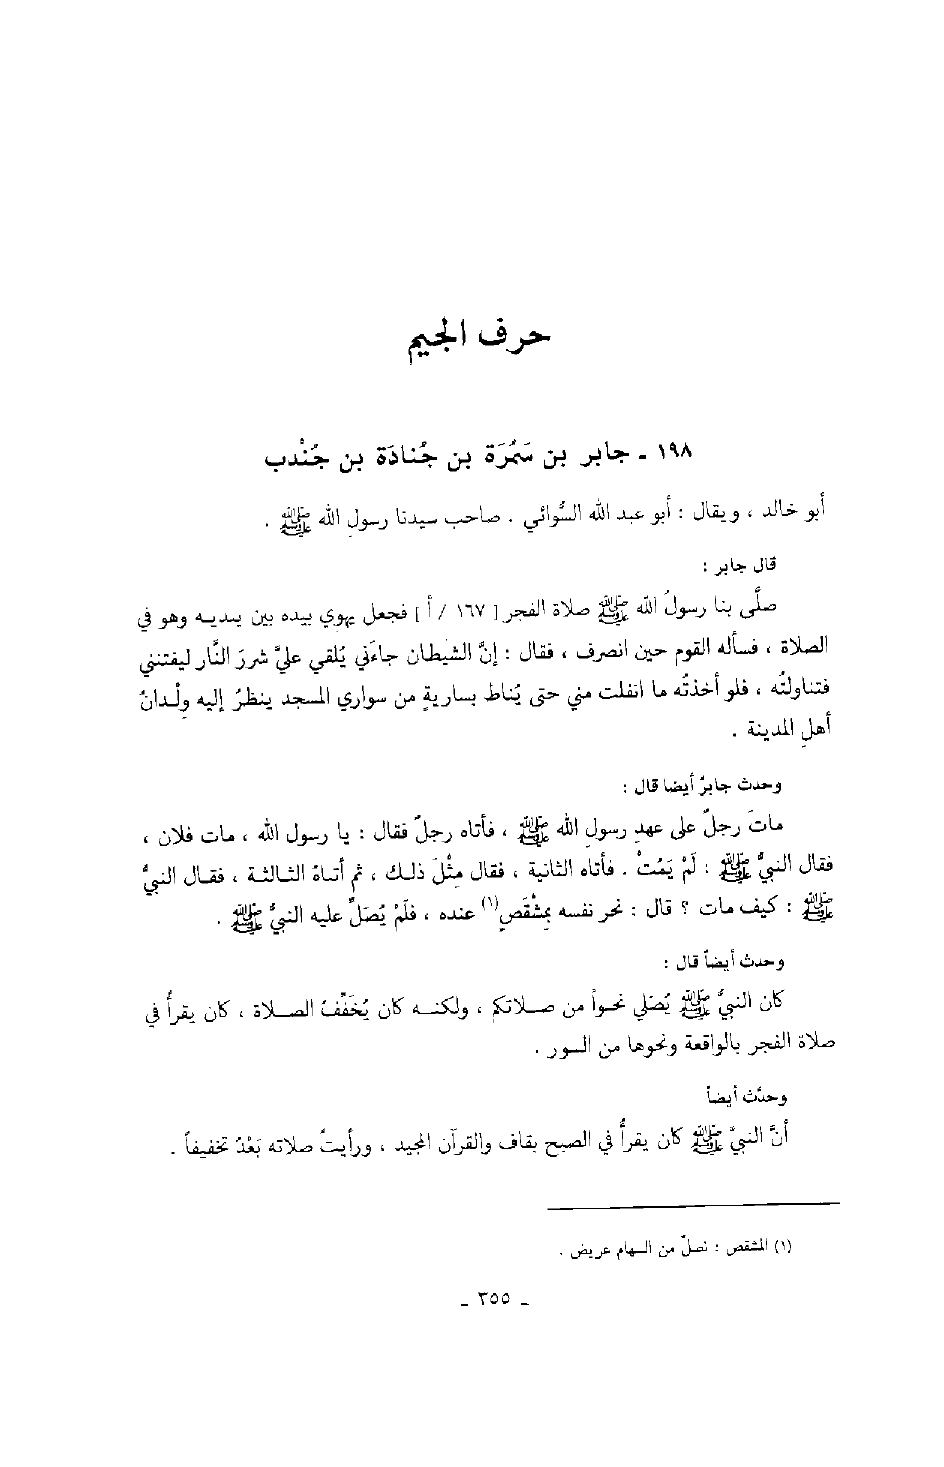 حرف الجيم
١٩٨ ـ جابر بن سَمُرَة بن جُنادَة بن جُنْدب
أبو خالد ، ويقال : أبو عبد الله السُّوائي . صاحب سيدنا رسولِ الله ﷺ .
قال جابر :
صلَّى بنا رسولُ الله ﷺ صلاة الفجر [ ١٦٧ / أ ] فجعل يهوي بيده بين يديه وهو في
الصلاة ، فسأله القوم حين انصرف ، فقال : إنَّ الشيطان جاءَني يُلقي عليَّ شررَ النَّار ليفتنني
فتناولتُه ، فلو أخذتُه ما انفلت مني حتى يُناط بساريةٍ من سواري المسجد ينظرُ إليه وِلْدانُ
أهلِ المدينة .
وحدث جابرٌ أيضا قال :
ماتَ رجلٌ على عهدِ رسولِ الله ﷺ ، فأتاه رجلٌ فقال : يا رسول الله ، مات فلان ،
فقال النبيُّ ﷺ : لَمْ يَمُتْ . فأتاه الثانية ، فقال مِثْلَ ذلك ، ثم أتاهُ الثالثة ، فقال النبيُّ
ﷺ : كيف مات ؟ قال : نحر نفسه بِمِشْقَصٍ(١) عنده ، فلَمْ يُصَلِّ عليه النبيُّ ﷺ .
وحدث أيضاً قال :
كان النبيُّ ﷺ يُصَلي نحواً من صلاتكم ، ولكنه كان يُخَفِّفُ الصلاة ، كان يقرأُ في
صلاة الفجر بالواقعة ونحوها من السور .
وحدَّث أيضاً
أنَّ النبيَّ ﷺ كان يقرأُ في الصبح بقاف والقرآن المجيد ، ورأيتُ صلاته بَعْدُ تخفيفاً .
(١) المشقص : نصلٌ من السهام عريض .
ـ ٣٥٥ ـ